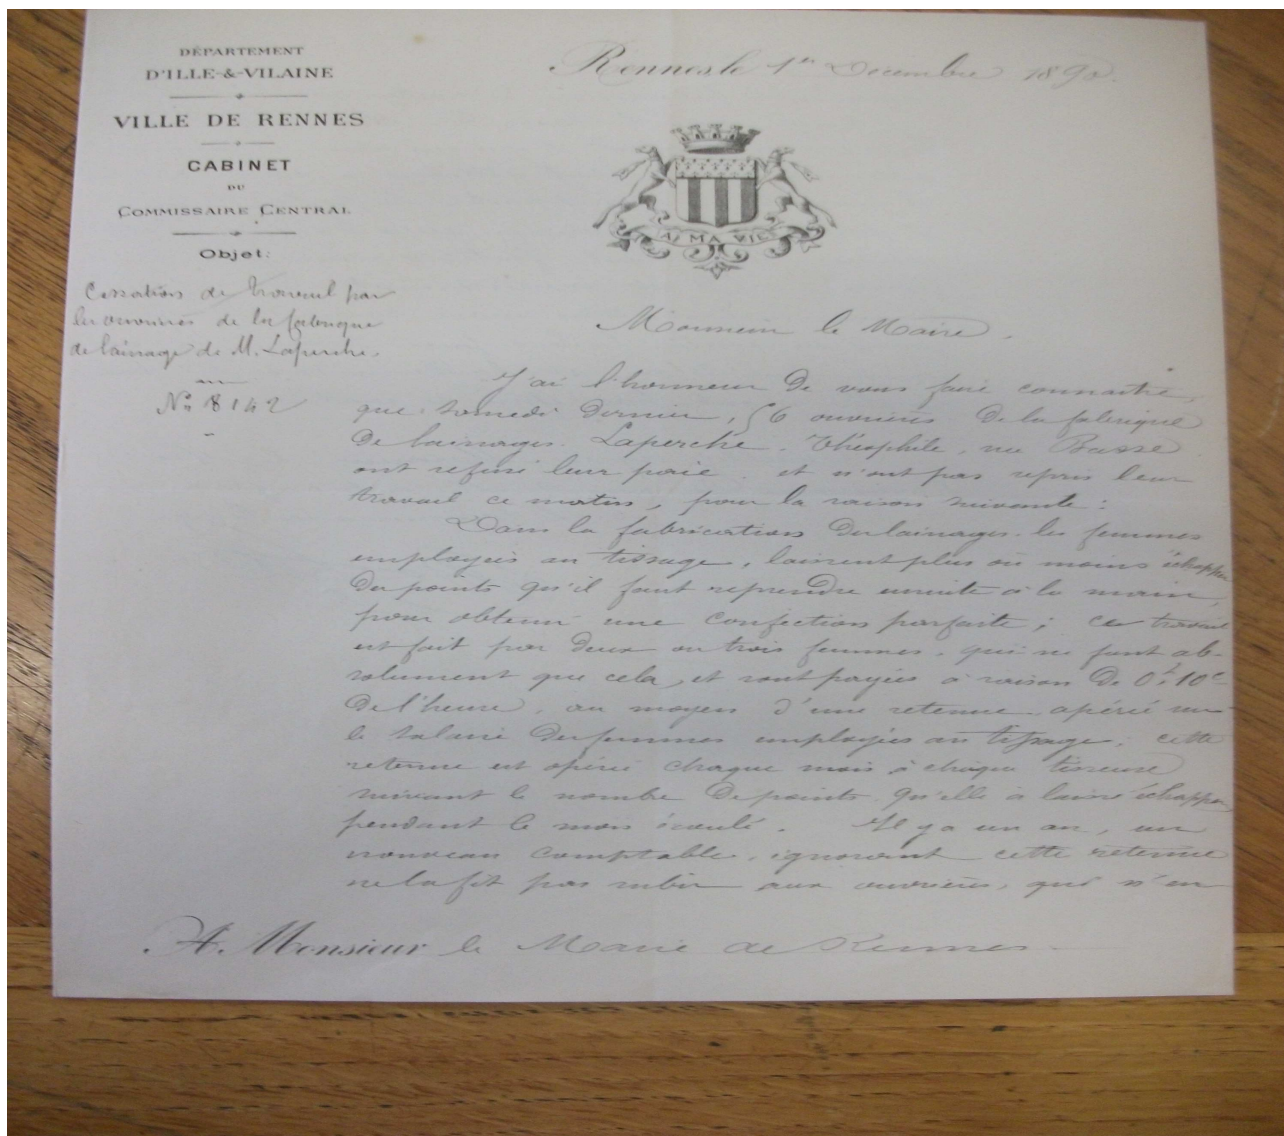 DÉPARTEMENT
D'ILLE-&-VILAINE
VILLE DE RENNES
CABINET
DU
COMMISSAIRE CENTRAL
Objet:
Cessation de travail par
les ouvrières de la fabrique
de lainage de M. Laperche.
No 8142
Rennes, le 1er Décembre 1890.
A MA VIE
Monsieur le Maire,
J'ai l'honneur de vous faire connaître,
que samedi dernier, 56 ouvrières de la fabrique
de lainages Laperche Théophile, rue Basse
ont refusé leur paie et n'ont pas repris leur
travail ce matin, pour la raison suivante :
Dans la fabrication des lainages les femmes
employées au tissage, laissent plus ou moins échapper
des points qu'il faut reprendre ensuite à la main,
pour obtenir une confection parfaite ; ce travail
est fait par deux ou trois femmes, qui ne font ab-
solument que cela, et sont payées à raison de 0f 10c
de l'heure, au moyen d'une retenue opérée sur
le salaire des femmes employées au tissage ; cette
retenue est opérée chaque mois à chaque tisseuse
suivant le nombre de points qu'elle a laissé échapper
pendant le mois écoulé. Il y a un an, un
nouveau comptable, ignorant cette retenue
ne la fit pas subir aux ouvrières, qui n'en
A Monsieur le Maire de Rennes.